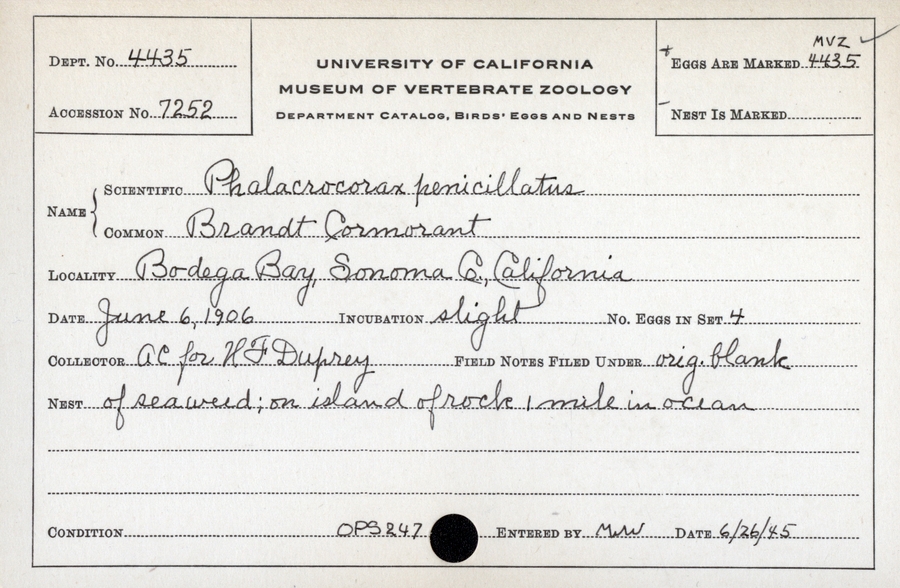 DEPT. No. 4435
ACCESSION No. 7252
UNIVERSITY OF CALIFORNIA
MUSEUM OF VERTEBRATE ZOOLOGY
DEPARTMENT CATALOG, BIRDS' EGGS AND NESTS
MVZ
+ EGGS ARE MARKED 4435
- NEST IS MARKED
NAME
SCIENTIFIC Phalacrocorax penicillatus
COMMON Brandt Cormorant
LOCALITY Bodega Bay, Sonoma Co., California
DATE June 6, 1906 INCUBATION slight No. EGGS IN SET 4
COLLECTOR AC for H F Duprey FIELD NOTES FILED UNDER orig. blank
NEST of seaweed; on island of rock 1 mile in ocean
CONDITION OPS247 ENTERED BY DATE 6/26/45